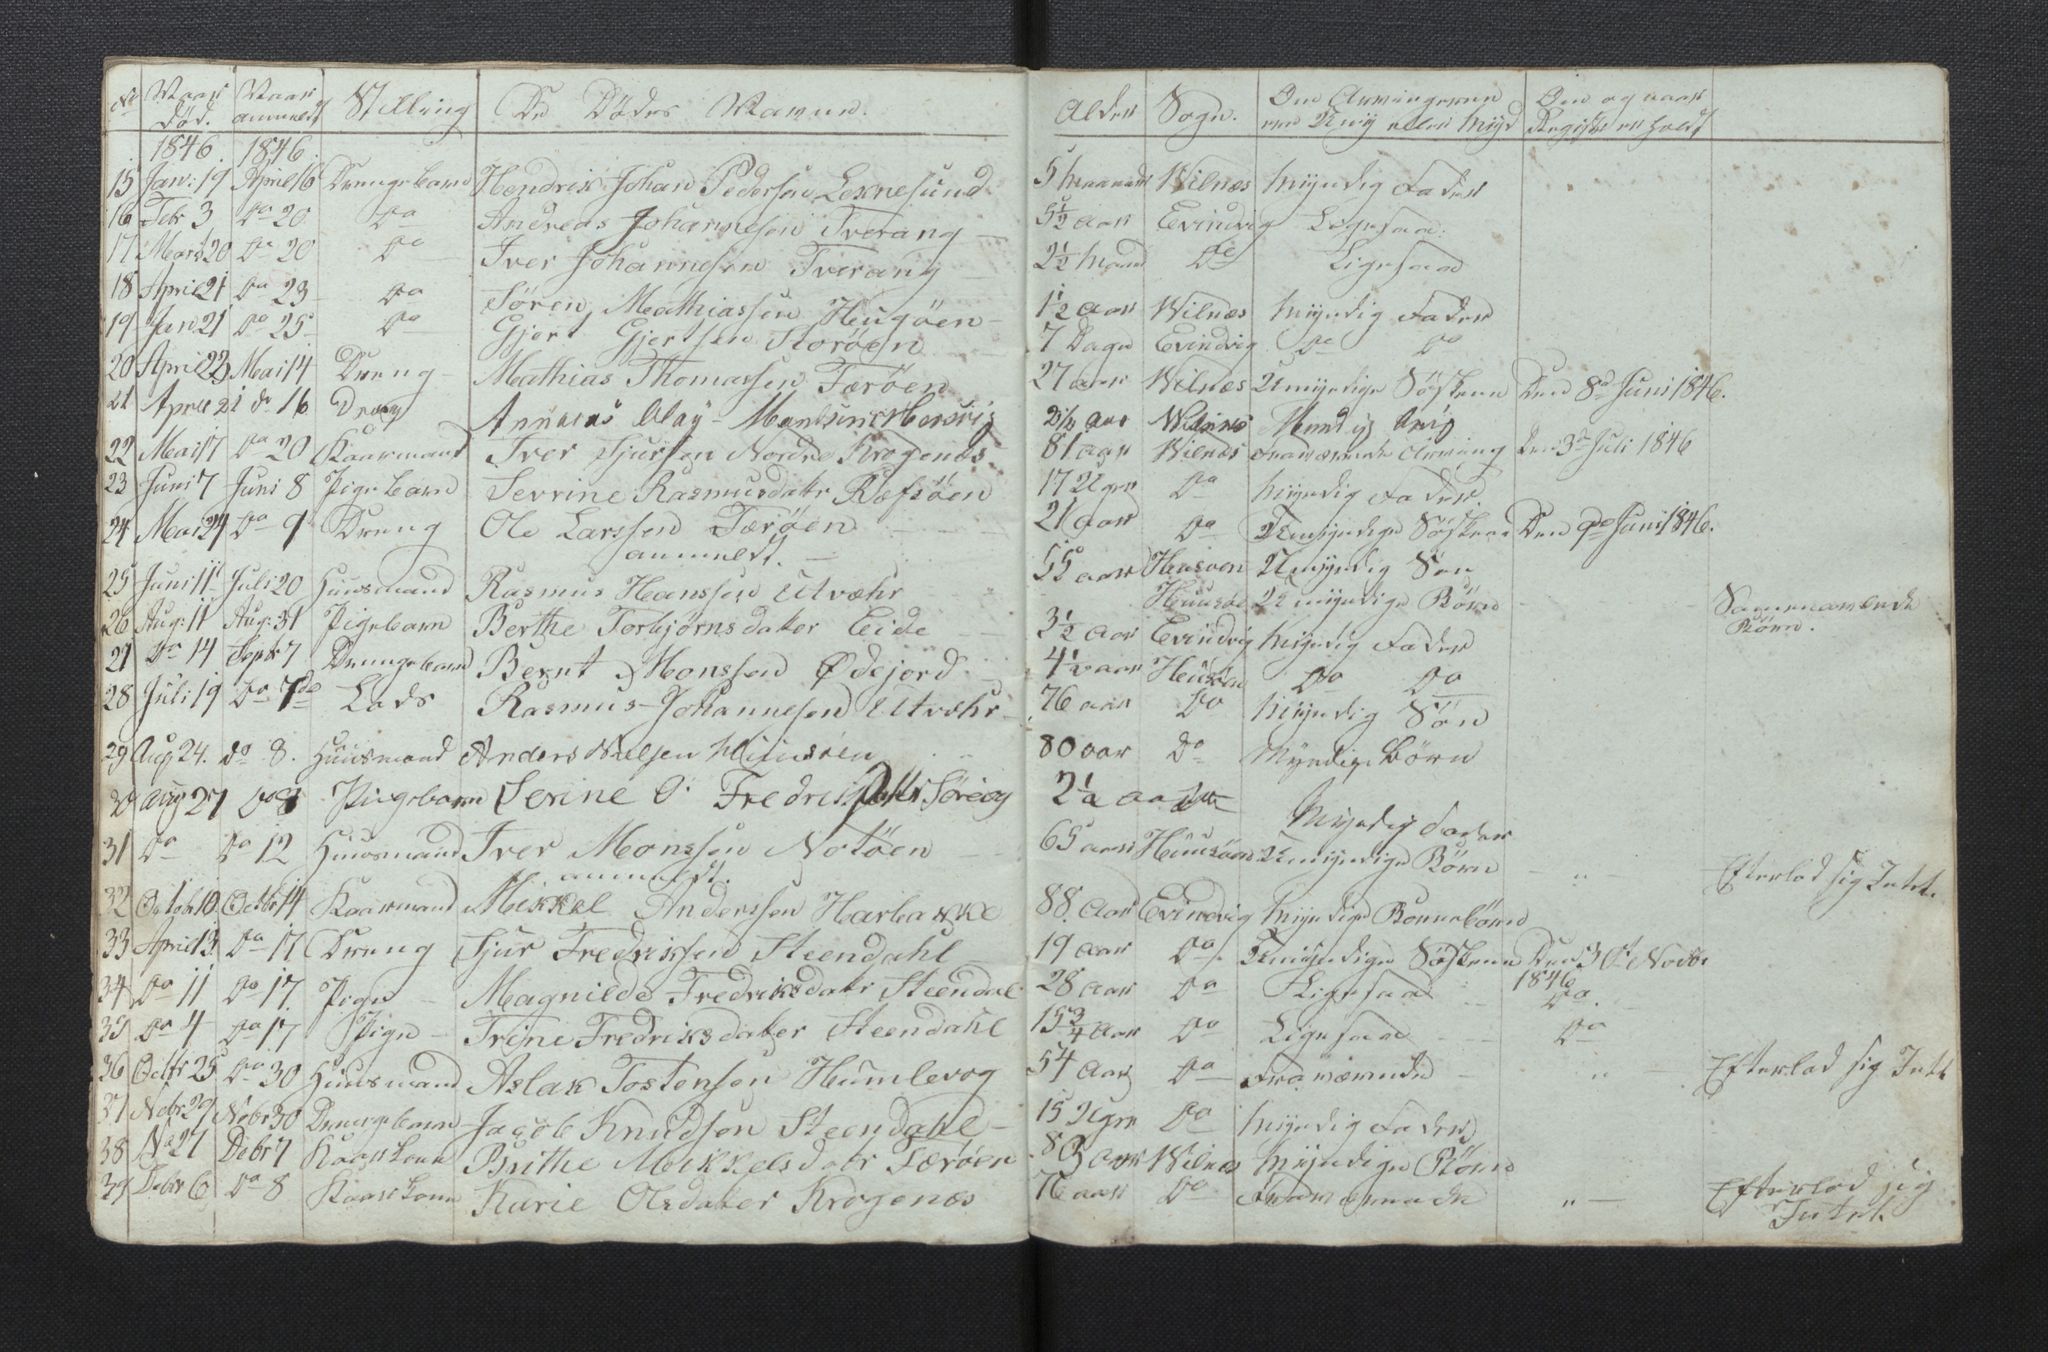 No Naar Død. Naar anmeldt Stilling De Dødes Navne. Alder Sogn. Om Arvingerne ere Umy eller Mynd Om og naar Registr er holdt
1846. 1846.
15 Jan: 19 April 16 Drengebarn Hendrik Johan Pedersen Lexnesund 5 Maaneder Wilnæs Myndig Fader
16 Febr 3 Do 20 Do Andreas Johannesen Tverang 5½ aar Evindvig Ligesaa.
17 Marts 20 Do 20 Do Iver Johannesen Tverang 2½ Maand Do Ligesaa
18 April 21 Do 23 Do Søren Mathiassen Hugøen 1½ aar Wilnæs Myndig Fader
19 Jan 21 Do 25 Do Gjert Gjertsen Storøen 7 Dage Evindvig Do Do
20 April 22 Mai 14 Dreng Mathias Thomassen Færøen 27 aar Wilnæs Umyndige Søskene Den 8de Juni 1846.
21 April 21 do 16 Dreng Andreas Olay aar Wilnæs Myndig
22 Mai 17 Do 20 Kaarmand Iver Sjursen Nordre Krogenæs 81 aar Wilnæs Fraværende Arving Den 3de Juli 1846
23 Juni 7 Juni 8 Pigebarn Sevrine Rasmusdatr Ræfsøen 17 Uger Do Myndig Fader
24 Mai 24 Do 9 Dreng Ole Larssen Færøen 21 aar Do Umyndige Søskene Den 9de Juni 1846.
anmeldt.
25 Juni 11 Juli 20 Huusmand Rasmus Hanssen Utvæhr 55 aar Huusøen Umyndig Søn
Huusøe Umyndige Børn Samenavnende Børn.
26 Aug: 11 Aug: 31 Pigebarn Berthe Torbjørnsdatter Eide 3½ aar Evindvig Myndig Fader
27 Do 14 Septbr 7 Drengebarn Bernt Monssen Ødejord 4½ aar Huusøen Do Do
28 Juli 19 Do 7de Lods Rasmus Johannesen Utvæhr 76 aar Do Myndig Søn
29 Aug 24. do 8. Huusmand Anders Nielsen Huusøen 80 aar Do Myndige Børn
30 Aug 27 Do 8 Pigebarn Serine O. Fredriksdattr Sørevog 2½ aar Do Myndig Fader
31 Do Do 12 Huusmand Iver Monssen Notøen 65 aar Huusøen Umyndige Børn „ Efterlod sig Intet.
anmeldt.
32 Octobr 10 Octbr 14 Kaarmand Mikkel Anderssen Harbakke 88. aar Evindvig Myndige Børnebørn
33 April 13 Do 17 Dreng Sjur Fredrikssen Steendahl 19 aar Do Umyndige Søskene Den 30te Novbr 1846
34 Do 11 Do 17. Pige Magnilde Fredriksdatr Steendal 28 aar Do Ligesaa Do.
35 Do 4 Do 17 Pige Trine Fredriksdatter Steendahl 15¾ aar Do Ligesaa Do
36 Octbr 25 Do 30 Huusmand Aslak Tostensen Humlevog 54 aar Do Fraværende „ Efterlod sig Intt
37 Nobr 29 Nobr 30 Drengebarn Jacob Knudsen Steendahl 15 Uger Do Myndig Fader
38 No 27 Debr 7 Kaarkone Brithe Mikkelsdatr Færøen 83 aar Wilnæs Myndige Børn
39 Debr 6 Do 8 Kaarkone Karie Olsdatter Krogenæs 76 aar Do Fraværende „ Efterlod sig Intet.